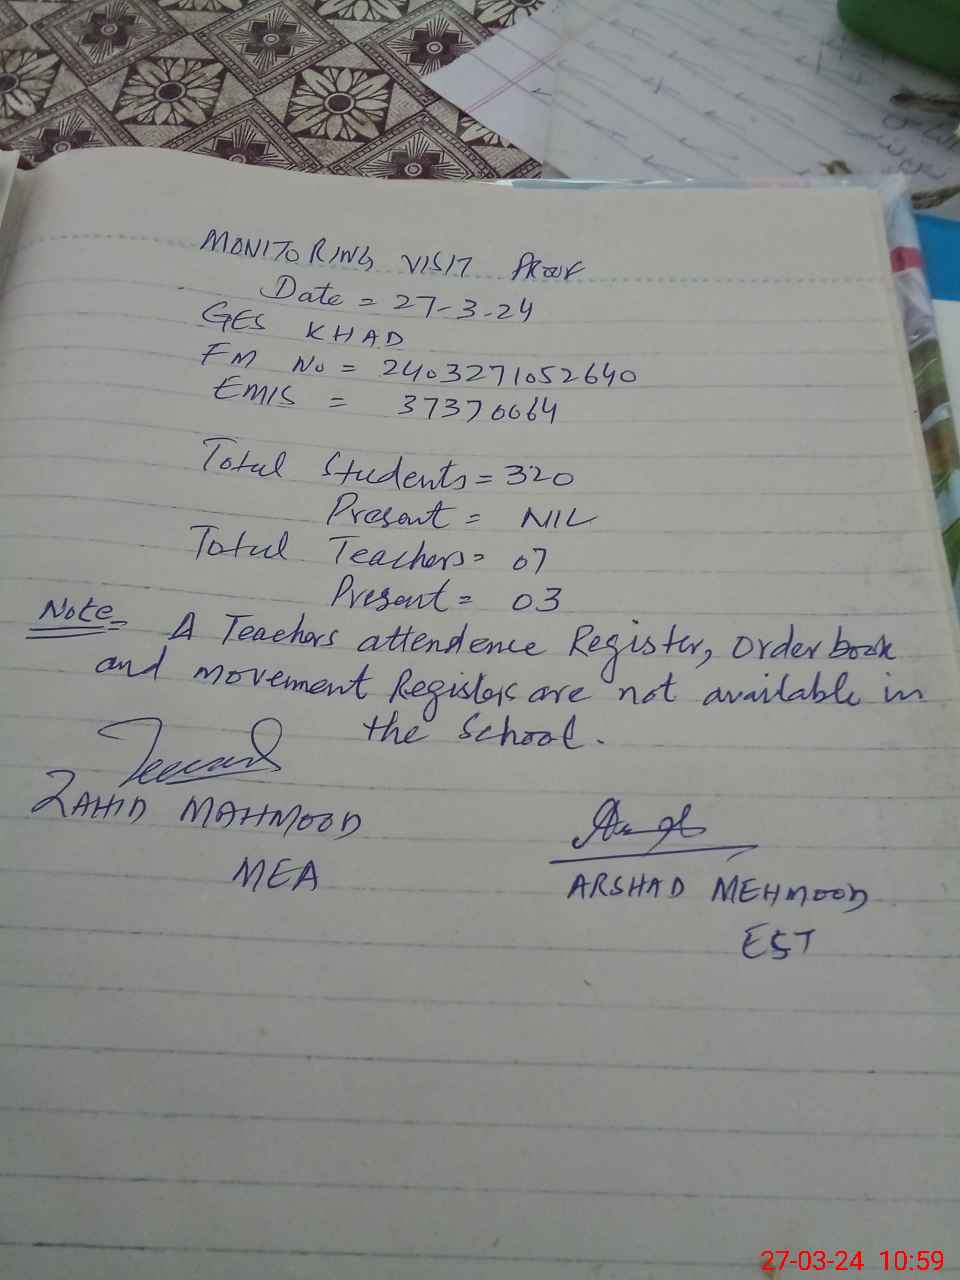 MONITORING VISIT PROOF
Date = 27-3-24
GES KHAD
FM No = 2403271052640
EMIS = 37370064
Total Students = 320
Present = NIL
Total Teachers = 07
Present = 03
Note = A Teachers attendence Register, Order book
and movement Registers are not available in
the School.
ZAHID MAHMOOD
MEA
ARSHAD MEHMOOD
EST
27-03-24 10:59